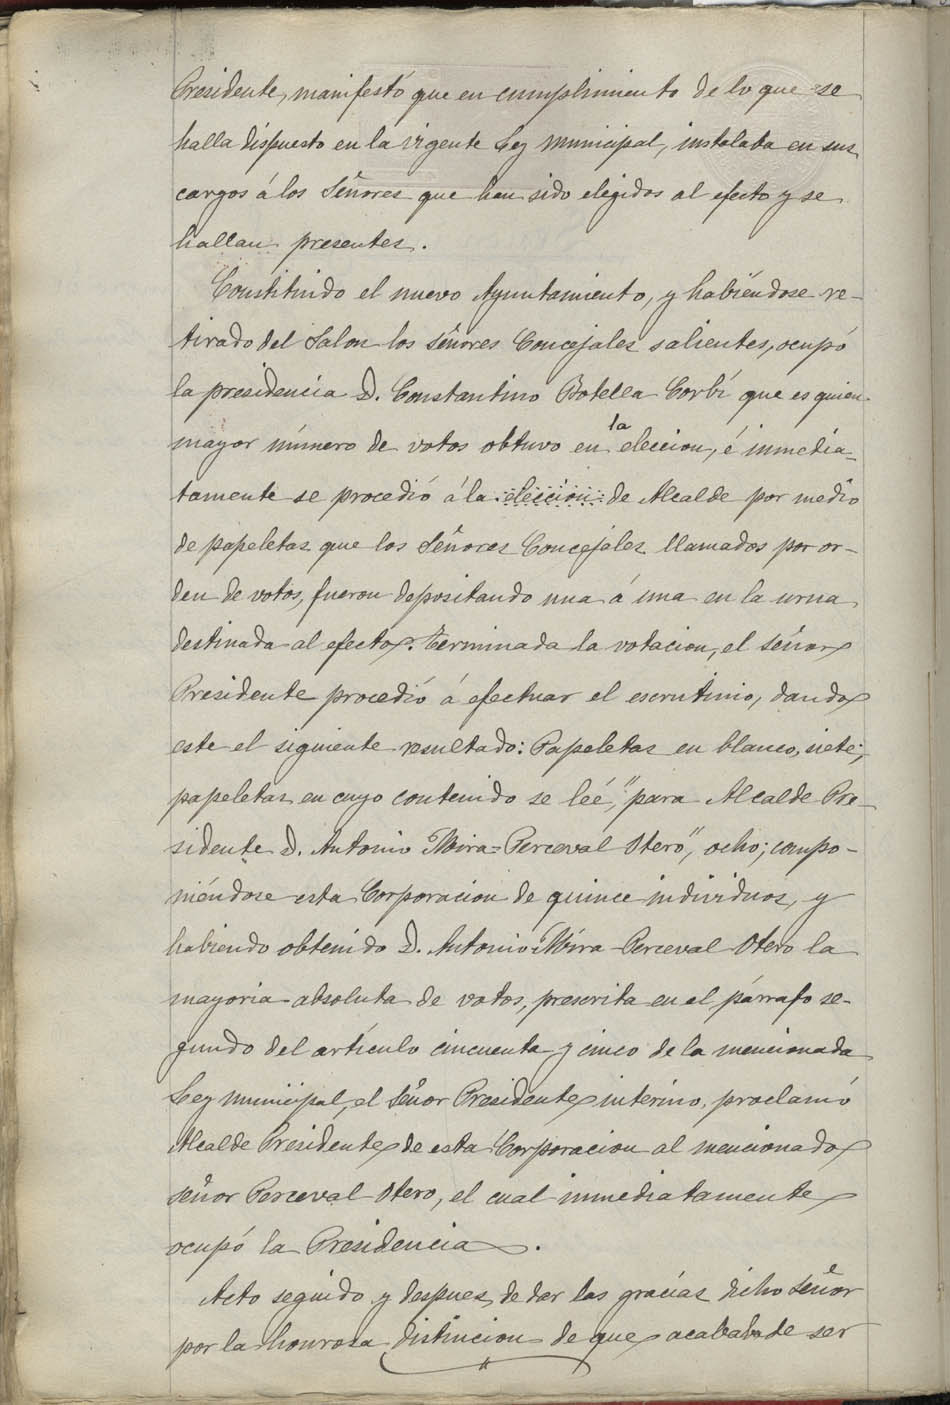 Presidente, manifestó que en cumplimiento de lo que se
halla dispuesto en la vigente Ley municipal, instalaba en sus
cargos á los Señores que han sido elegidos al efecto y se
hallan presentes.
Constituido el nuevo Ayuntamiento, y habiéndose re-
tirado del Salon los señores Concejales salientes, ocupó
la presidencia D. Constantino Botella Corbí que es quien
mayor número de votos obtuvo en la eleccion, é inmedia-
tamente se procedió á la eleccion de Alcalde por medio
de papeletas que los Señores Concejales llamados por or-
den de votos, fueron depositando una á una en la urna
destinada al efecto. Terminada la votacion, el señor
Presidente procedió á efectuar el escrutinio, dando
este el siguiente resultado: Papeletas en blanco, siete;
papeletas en cuyo contenido se leé, "para Alcalde Pre-
sidente D. Antonio Mira=Perceval Otero", ocho; compo-
niéndose esta Corporacion de quince individuos, y
habiendo obtenido D. Antonio Mira-Perceval Otero la
mayoria absoluta de votos, prescrita en el párrafo se-
gundo del artículo cincuenta y cinco de la mencionada
Ley municipal, el Señor Presidente interino, proclamó
Alcalde Presidente de esta Corporacion al mencionado
señor Perceval Otero, el cual inmediatamente
ocupó la Presidencia.
Acto seguido y despues de dar las gracias dicho Señor
por la honrosa distincion de que acababa de ser